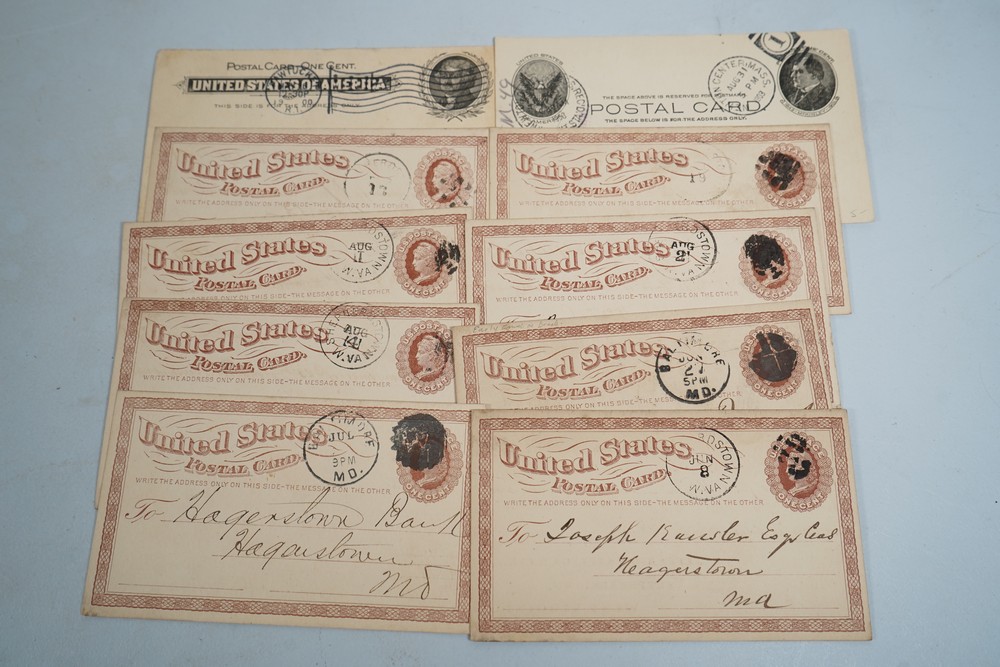 POSTAL CARD, ONE CENT.
UNITED STATES OF AMERICA
THIS SIDE IS FOR THE ADDRESS ONLY.
UNITED STATES
THE SPACE ABOVE IS RESERVED FOR
POSTAL CARD.
THE SPACE BELOW IS FOR THE ADDRESS ONLY.
CENTER, MASS.
AUG 31
5 PM
United States
POSTAL CARD.
WRITE THE ADDRESS ONLY ON THIS SIDE-THE MESSAGE ON THE OTHER
13
United States
POSTAL CARD.
WRITE THE ADDRESS ONLY ON THIS SIDE-THE MESSAGE ON THE OTHER
13
United States
POSTAL CARD.
WRITE THE ADDRESS ONLY ON THIS SIDE-THE MESSAGE ON THE OTHER
AUG
11
W.VA
U.S. POSTAGE
ONE CENT
United States
POSTAL CARD.
WRITE THE ADDRESS ONLY ON THIS SIDE-THE MESSAGE ON THE OTHER
AUG
21
W.VA
ONE CENT
United States
POSTAL CARD.
WRITE THE ADDRESS ONLY ON THIS SIDE-THE MESSAGE ON THE OTHER
AUG
14
W.VA
ONE CENT
United States
POSTAL CARD.
WRITE THE ADDRESS ONLY ON THIS SIDE-THE MESSAGE ON THE OTHER
BALTIMORE
27
5PM
MD.
ONE CENT
United States
POSTAL CARD.
WRITE THE ADDRESS ONLY ON THIS SIDE-THE MESSAGE ON THE OTHER
BALTIMORE
JUL
9PM
MD.
ONE CENT
To Hagerstown Bank
Hagerstown
Md
United States
POSTAL CARD.
WRITE THE ADDRESS ONLY ON THIS SIDE-THE MESSAGE ON THE OTHER
JUN
8
W.VA
ONE CENT
To Joseph Kausler Esq Cas
Heagerstown
Md